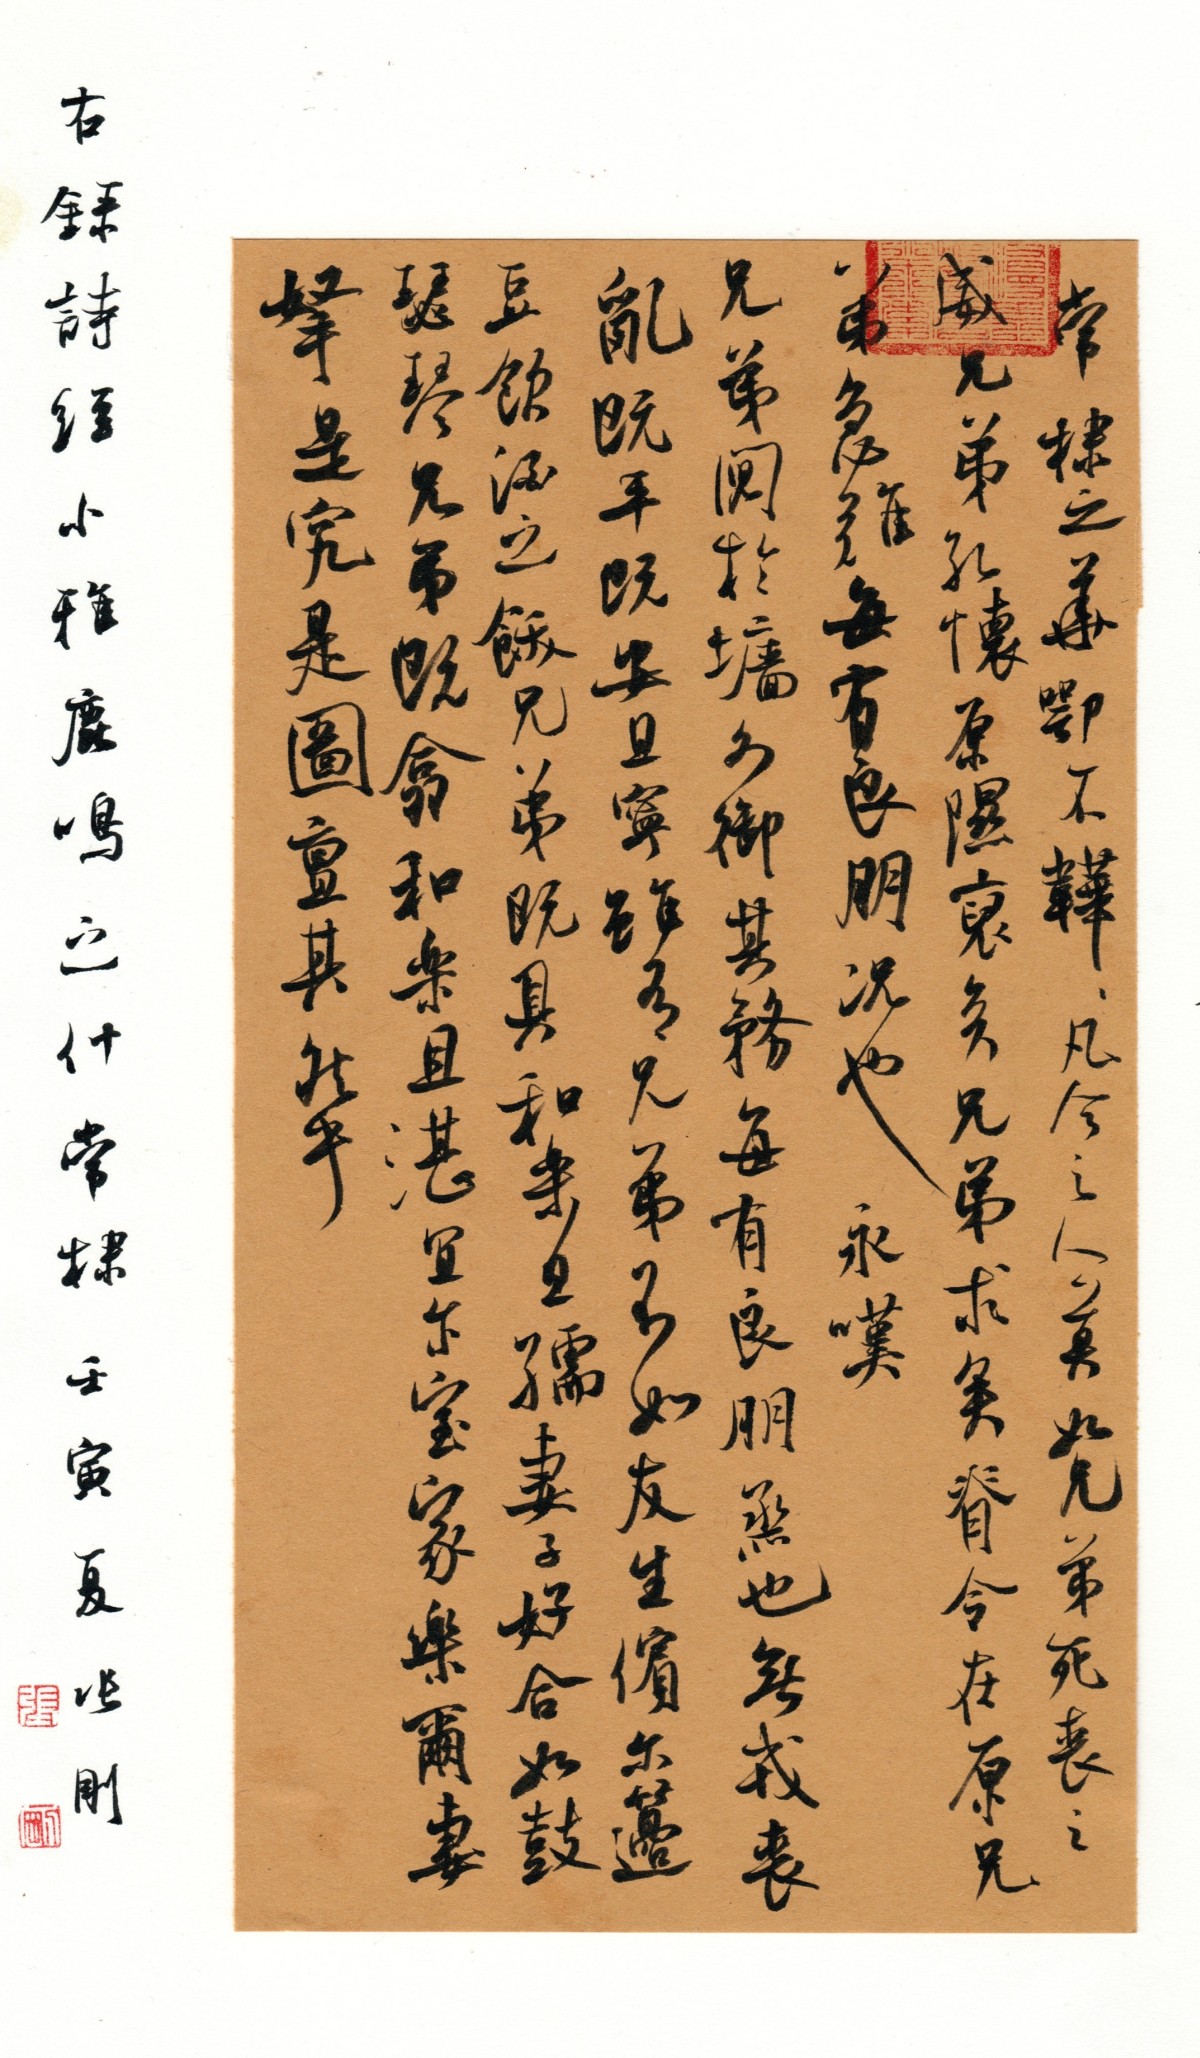 常棣之華鄂不韡〻凡今之人莫如兄弟死喪之
威兄弟孔懷原隰裒矣兄弟求矣脊令在原兄
弟急難每有良朋況也永嘆
兄弟鬩於墻外御其務每有良朋烝也無戎喪
亂既平既安且寧雖有兄弟不如友生儐尔籩
豆飲酒之飫兄弟既具和樂且孺妻子好合如鼓
瑟琴兄弟既翕和樂且湛宜尔室家樂爾妻
孥是究是圖亶其然乎
右錄詩經小雅鹿鳴之什常棣壬寅夏張剛
張
剛